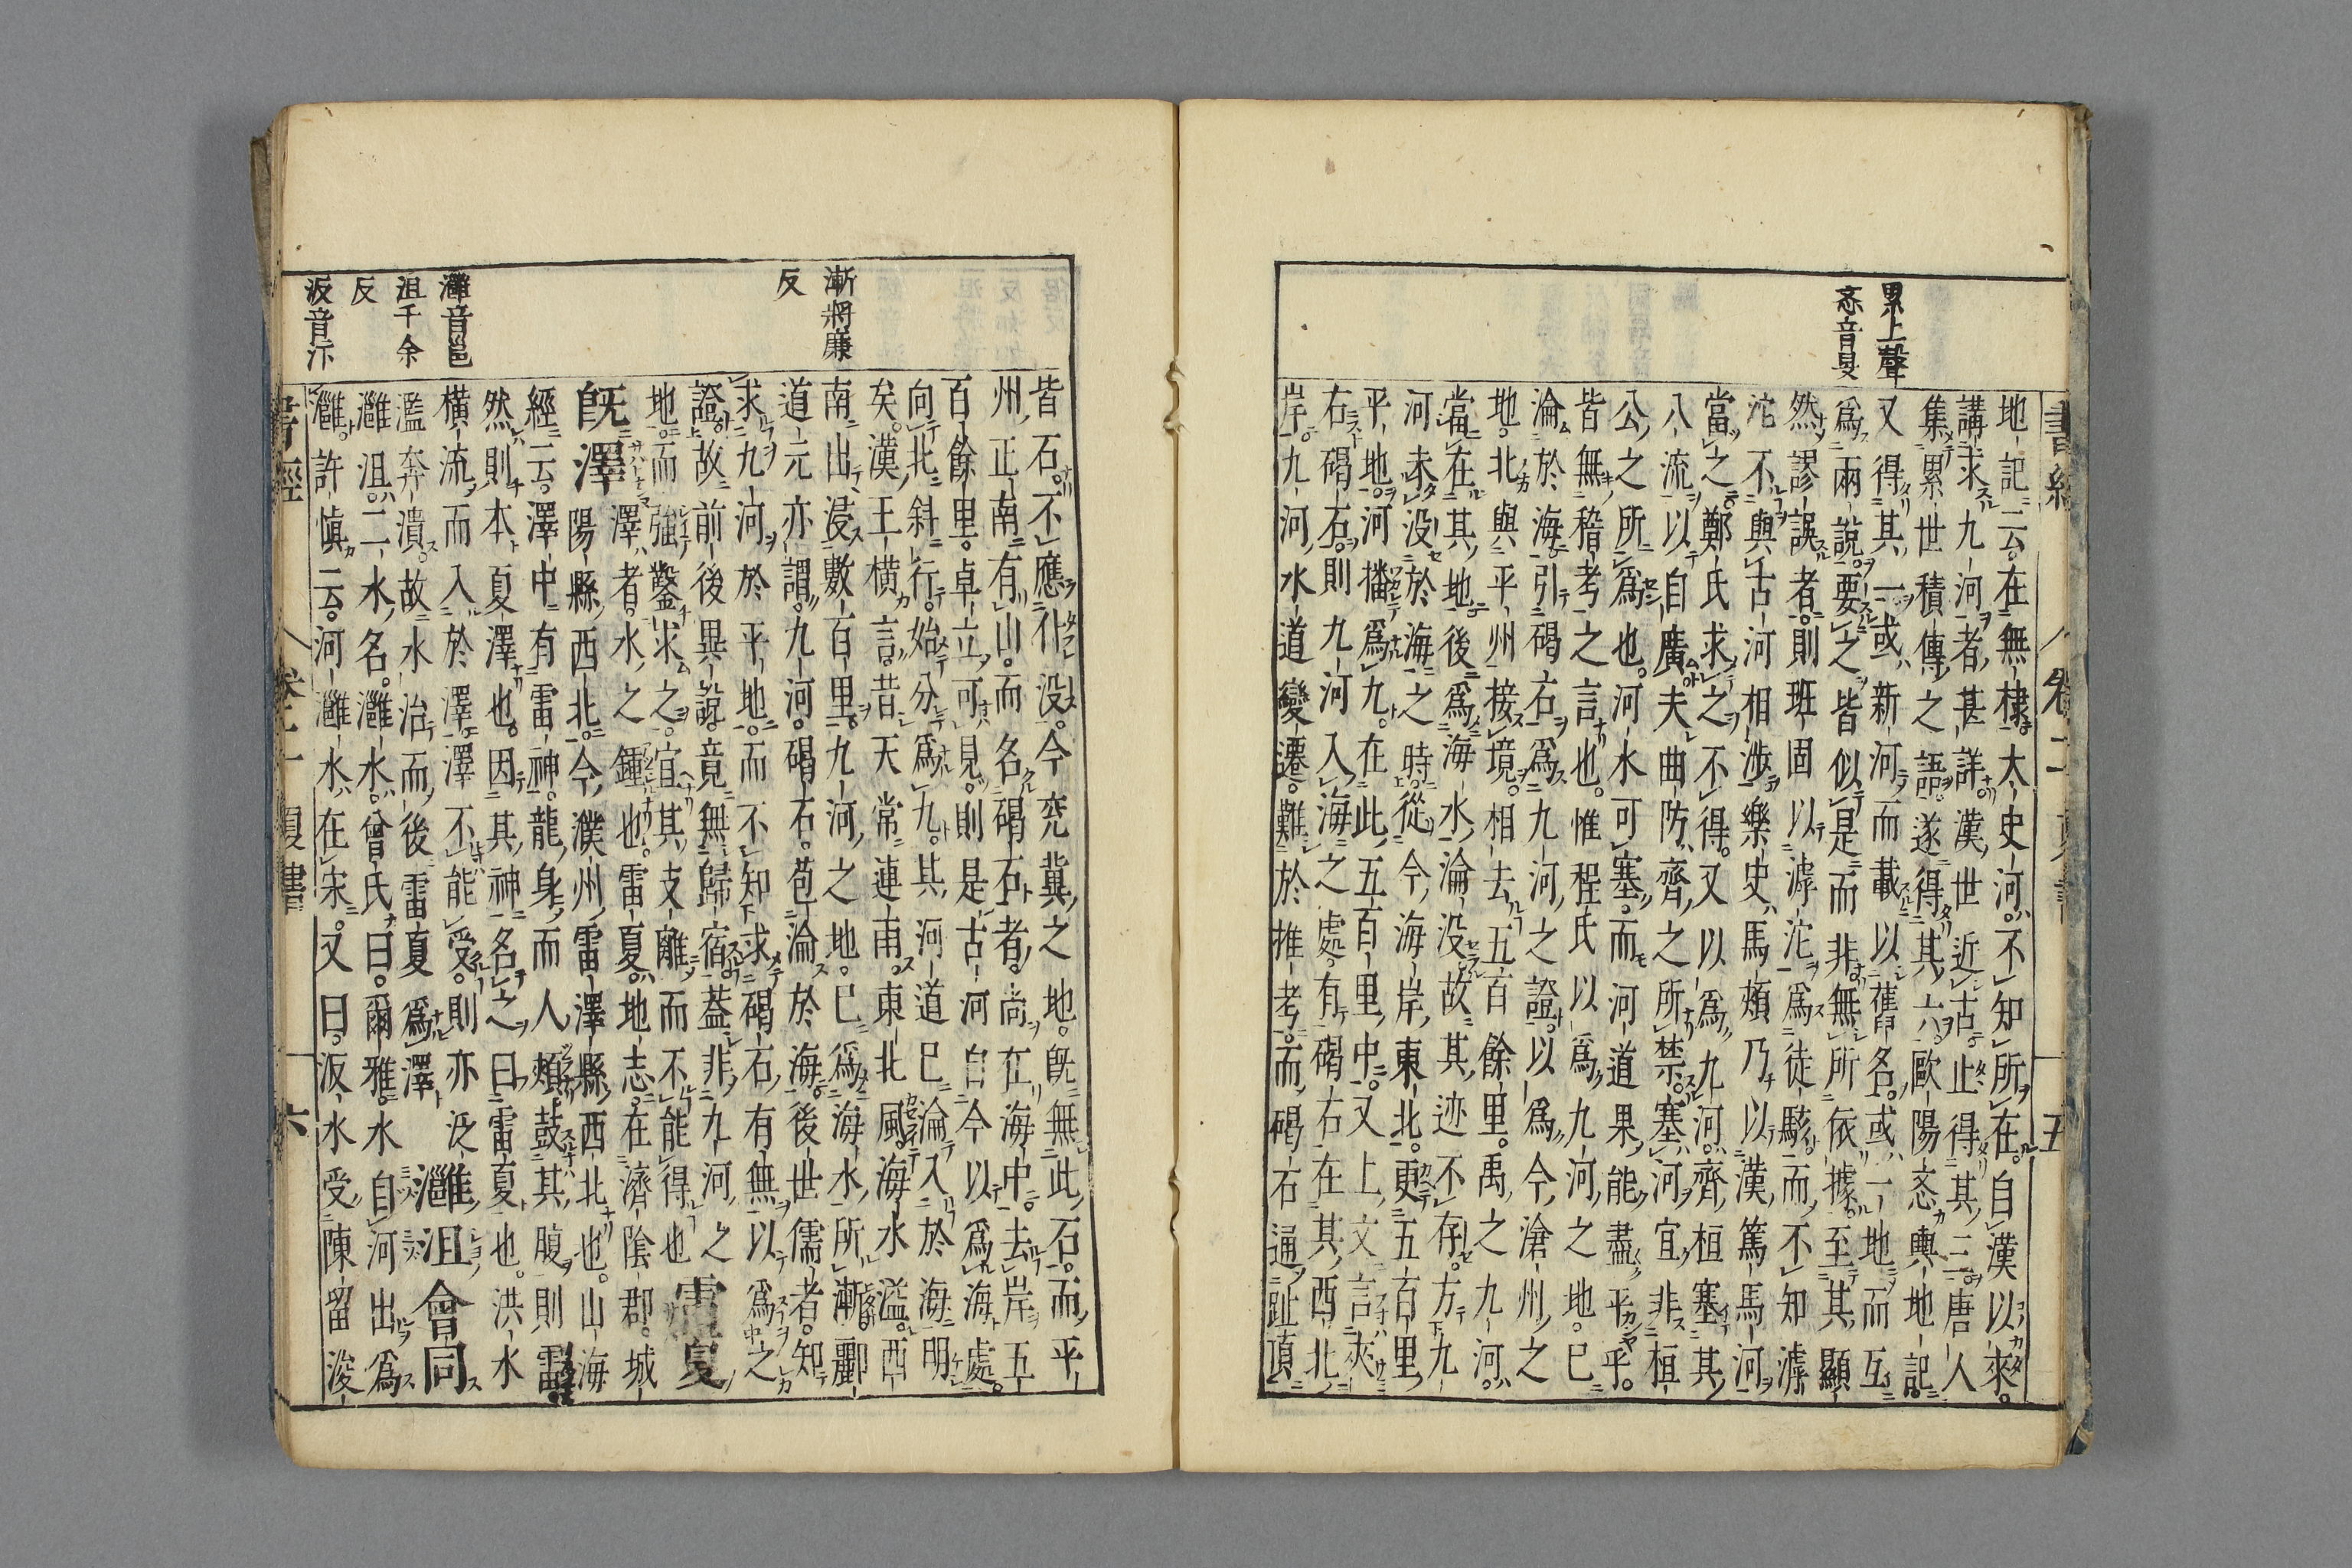 累上聲
忞音旻
書經 卷二 夏書 五
地記云。在無棣。太史河。不知所在。自漢以來。
講求九河者。甚詳。漢世近古。止得其三。唐人
集累世積傳之語。遂得其六。歐陽忞輿地記。
又得其一。或新河而載以舊名。或一地而互
爲兩說。要之皆似是而非。無所依據。至其顯
然謬誤者。則班固以滹沱爲徒駭。而不知滹
沱不與古河相涉。樂史馬頰乃以漢篤馬河
當之。鄭氏求之不得。又以爲九河齊桓塞其
八流以自廣。夫曲防。齊之所禁。塞河宜非桓
公之所爲也。河水可塞。而河道果能盡平乎。
皆無稽考之言也。惟程氏以爲九河之地。已
淪於海。引碣石爲九河之證。以爲今滄州之
地。北與平州接境。相去五百餘里。禹之九河。
當在其地。後爲海水淪没。故其迹不存。方九
河未没於海之時。從今海岸東北。更五百里
平地。河播爲九。在此五百里中。又上文言夾
右碣石。則九河入海之處。有碣石在其西北
岸。九河水道變遷。難於推考。而碣石通趾頂
漸將廉
反
灉音邕
沮千余
反
汳音汴
皆石。不應仆没。今兗冀之地。旣無此石。而平
州正南有山。而名碣石者。尚在海中。去岸五
百餘里。卓立可見。則是古河自今以爲海處。
向北斜行。始分爲九。其河道已淪入於海明
矣。漢王横言。昔天常連雨。東北風。海水溢。西
南出。浸數百里。九河之地。已爲海水所漸。酈
道元亦謂。九河碣石。苞淪於海。後世儒者。知
求九河於平地。而不知求碣石有無以爲之
證。故前後異說。竟無歸宿。蓋非九河之
地。而強鑿求之。宜其支離而不能得也 雷夏
旣澤 澤者。水之鍾也。雷夏。地志。在濟陰郡。城
陽縣西北。今濮州雷澤縣西北也。山海
經云。澤中有雷神。龍身而人頰。鼓其腹則雷。
然則本夏澤也。因其神名之曰雷夏也。洪水
横流而入於澤。澤不能受。則亦泛
濫奔潰。故水治而後雷夏爲澤 灉沮會同
灉沮。二水名。灉水。曾氏曰。爾雅。水自河出爲
灉。許慎云。河灉水。在宋。又曰。汳水受陳留浚
書經 卷二 夏書 六